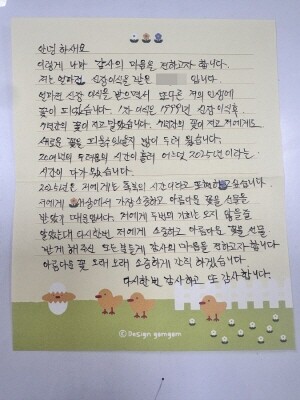 안녕 하세요
이렇게 나마 감사의 마음을 전하고자 합니다.
저는 얼마전 신장이식을 받은 입니다.
얼마전 신장 이식을 받으면서 또다른 저의 인생에
꽃이 피었습니다. 1차 이식은 1999년 신장 이식후
꽃이 지고 말았습니다. 꽃이 지고 저에게도
새로운 꽃을 피울수 있을지 많이 두려 웠습니다.
20여년의 두려움의 시간이 흘러 어느덧 2025년이라는
시간이 다가 왔습니다.
2025년은 저에게는 축복의 시간이라고 표현하고 싶습니다.
저에게 세상에서 가장 소중하고 아름다운 꽃을 선물
받았기 때문입니다. 저에게 두번의 기회는 오지 않을줄
알았는데 다시한번 저에게 소중하고 아름다운 꽃을 선물
받게 해주신 모든분들게 감사의 마음을 전하고자 합니다
아름다운 꽃 오래 오래 소중하게 간직 하겠습니다.
다시한번 감사하고 또 감사합니다.
ⓒ Design gomgom